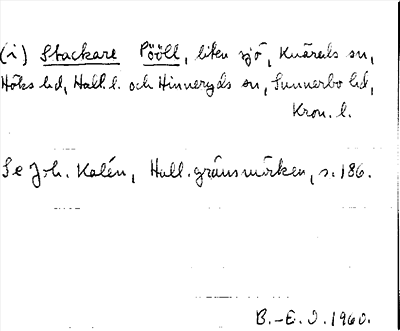 (i) Stackare Pööll, liten sjö, Knäreds sn,
Höks hd, Hall. l. och Hinneryds sn, Sunnerbo hd,
Kron. l.
Se Joh. Kalén, Hall. gränsmärken, s. 186.
B.-E. O. 1960.